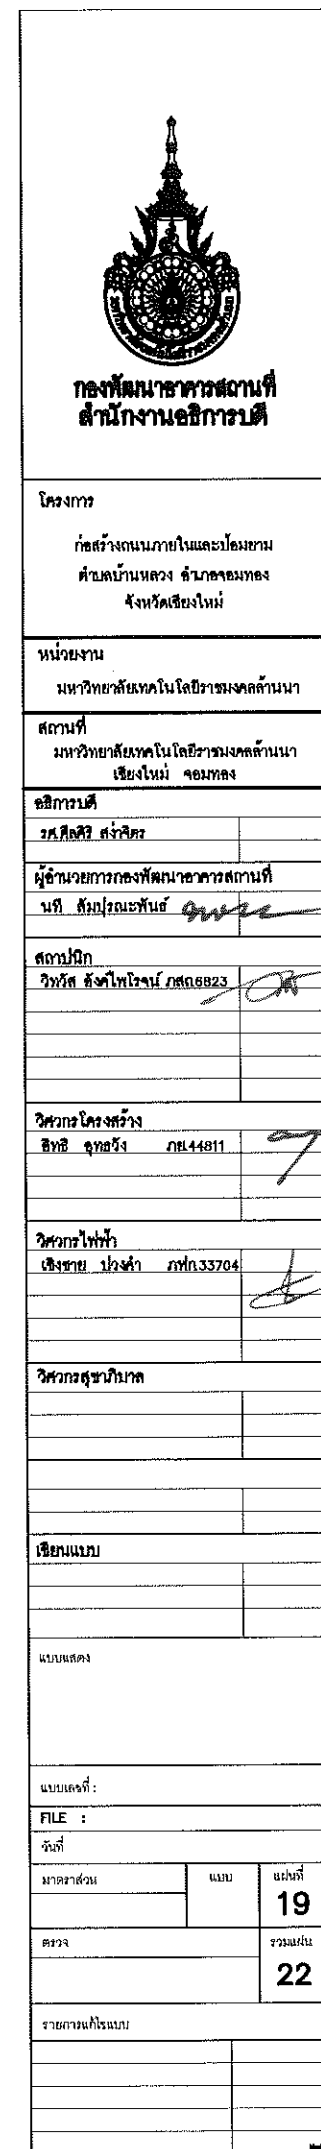 กองพัฒนาอาคารสถานที่
สำนักงานอธิการบดี
โครงการ
ก่อสร้างถนนภายในและป้อมยาม
ตำบลบ้านหลวง อำเภอจอมทอง
จังหวัดเชียงใหม่
หน่วยงาน
มหาวิทยาลัยเทคโนโลยีราชมงคลล้านนา
สถานที่
มหาวิทยาลัยเทคโนโลยีราชมงคลล้านนา
เชียงใหม่ จอมทอง
อธิการบดี
รศ.ศีลศิริ สง่าจิตร
ผู้อำนวยการกองพัฒนาอาคารสถานที่
นที สัมปุรณะพันธ์
สถาปนิก
วิทวัส ภสถ.6823
วิศวกรโครงสร้าง
สิทธิ ภย.44811
วิศวกรไฟฟ้า
เชิงชาย ปวงคำ ภฟก.33704
วิศวกรสุขาภิบาล
เขียนแบบ
แบบแสดง
แบบเลขที่ :
FILE :
วันที่
มาตราส่วน แบบ แผ่นที่
19
ตรวจ รวมแผ่น
22
รายการแก้ไขแบบ